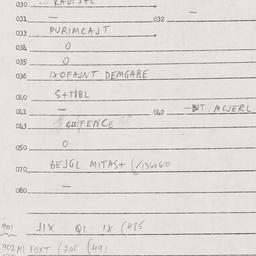 030
031 — 032 —
033 PURIMCAJT
034 0
035 0
036 IXOFAJNT DEMGARE
040 S+TIBL
041 — 042 MCJERL
043 GEFENCE
050 0
070 BEJGL MITAS+ (/136060
080 —
901 JIX QI IX (485
902 MI FOXT (205 (491